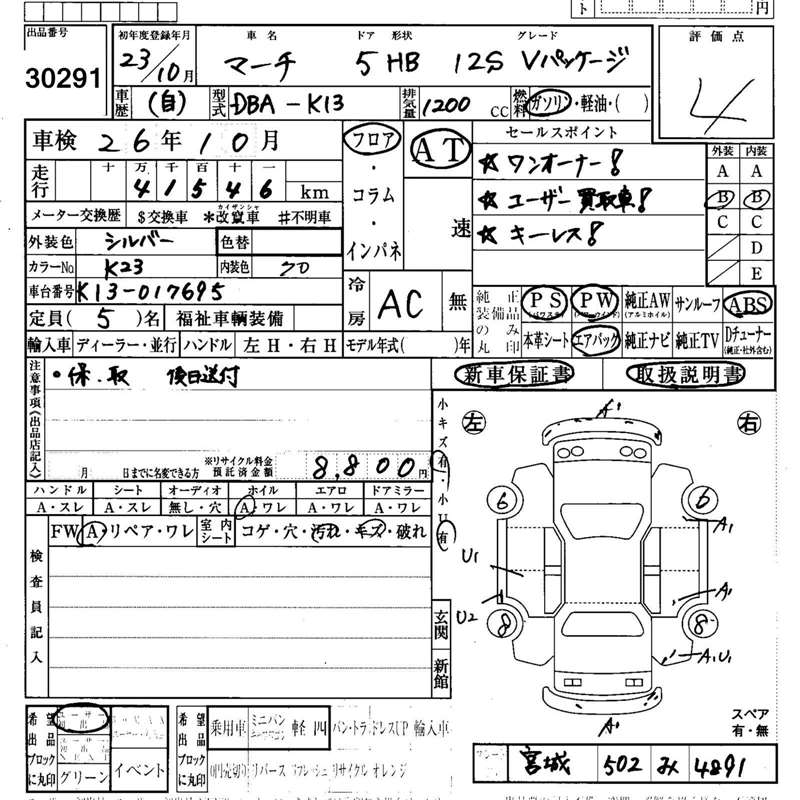 出品番号
30291
初年度登録年月
23/10月
車名 ドア 形状 グレード
マーチ 5 HB 12S Vパッケージ
評価点
4
車歴 (自) 型式 DBA-K13 排気量 1200 CC 燃料 ガソリン・軽油・( )
車検 26年10月
走行 十 万 千 百 十 一
4 1 5 4 6 km
メーター交換歴 $交換車 *改竄車 #不明車
カイザンシャ
外装色 シルバー 色替
カラーNo K23 内装色 クロ
車台番号 K13-017695
定員(5)名 福祉車輌装備
輸入車 ディーラー・並行 ハンドル 左H・右H モデル年式( )年
フロア・コラム・インパネ
AT
速
冷房 AC 無
セールスポイント
☆ ワンオーナー!
☆ ユーザー買取車!
☆ キーレス!
外装 内装
A A
B B
C C
D
E
純正装備品のみ丸印
PS PW 純正AW サンルーフ ABS
(パワステ) (パワーウインド) (アルミホイル)
本革シート エアバッグ 純正ナビ 純正TV Dチューナー
(純正・社外含む)
新車保証書 取扱説明書
注意事項(出品店記入)
・保、取 後日送付
月 日までに名変できる方
※リサイクル料金預託済金額 8,800円
ハンドル シート オーディオ ホイル エアロ ドアミラー
A・スレ A・スレ 無し・穴 A・ワレ A・ワレ A・ワレ
FW A・リペア・ワレ 室内シート コゲ・穴・汚れ・キズ・破れ
検査員記入
小キズ有・小U有
玄関
新館
左 右
A1
6 6
A1
U1
A1
U2
8 8
A1,U1
A1
スペア
有・無
希望出品ブロックに丸印
グリーン イベント
希望出品ブロックに丸印
乗用車 ミニバン 軽 四 バン・トラ ドレスUP 輸入車
リバース リフレッシュ リサイクル オレンジ
宮城 502 み 4891